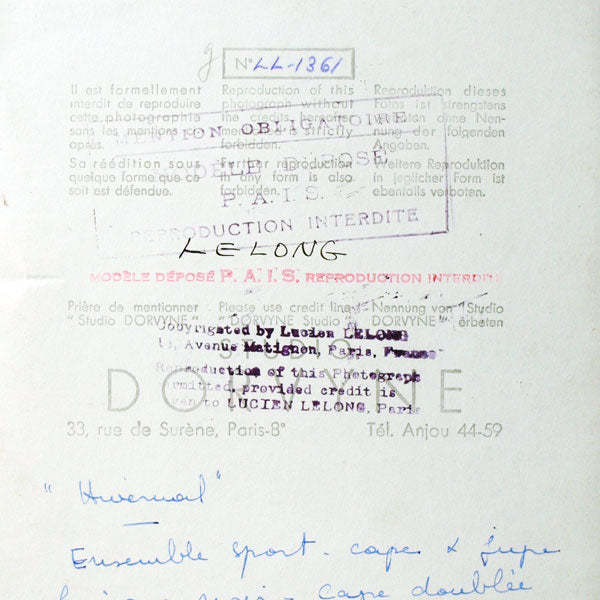 N° LL-1361
Il est formellement
interdit de reproduire
cette photographie
sans les mentions ci-
après.
Sa réédition sous
quelque forme que ce
soit est défendue.
Reproduction of this
photograph without
the credits hereafter
mentioned is strictly
forbidden.
Further reproduction
in any form is also
forbidden.
Reproduktion dieses
Fotos ist strengstens
ohne Nen-
nung der folgenden
Angaben.
Weitere Reproduktion
in jeglicher Form ist
ebenfalls verboten.
MENTION OBLIGATOIRE
MODÈLE DÉPOSÉ
P. A. I. S.
REPRODUCTION INTERDITE
LELONG
MODÈLE DÉPOSÉ P. A. I. S. REPRODUCTION INTERDITE
Prière de mentionner
"Studio DORVYNE"
Please use credit line
"Studio DORVYNE"
Nennung von "Studio
DORVYNE" erbeten
Copyrighted by Lucien LELONG
Avenue Matignon, Paris, France
Reproduction of this Photograph
ermitted, provided credit is
ven to LUCIEN LELONG, Paris
STUDIO
DORVYNE
33, rue de Surène, Paris-8e
Tél. Anjou 44-59
"Hivernal"
Ensemble sport - cape & jupe
noir - cape doublée